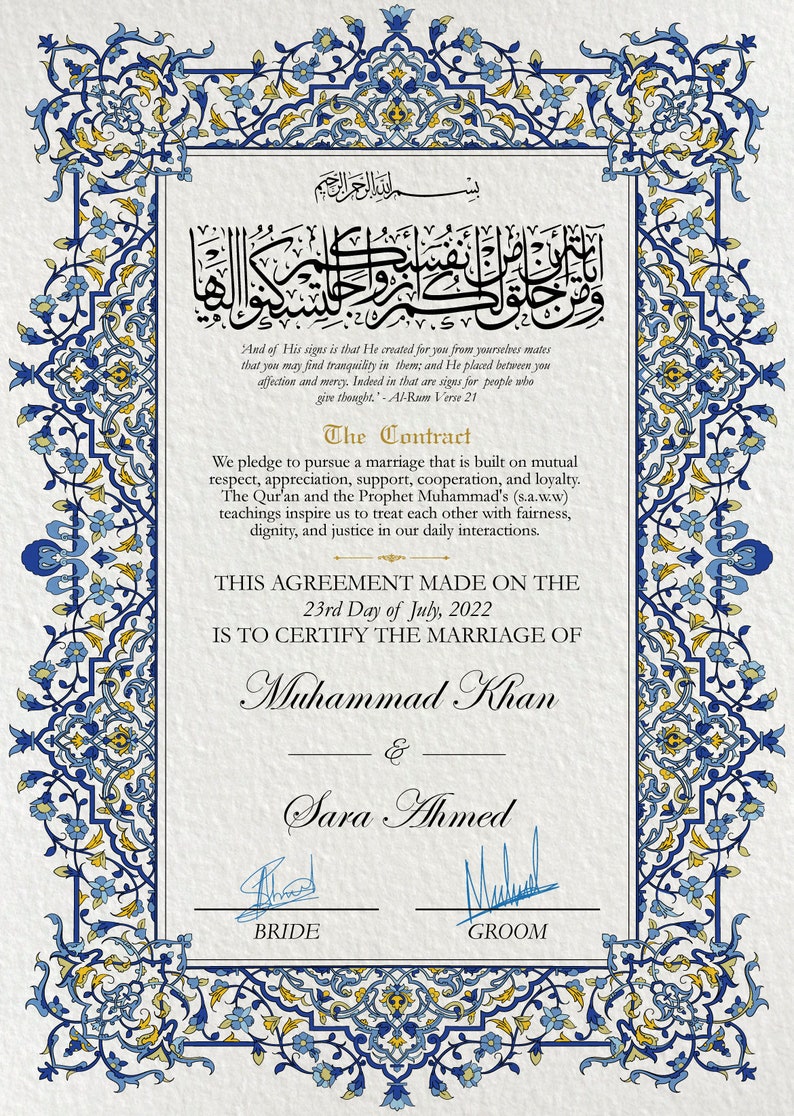 بسم الله الرحمن الرحيم
ومن آياته أن خلق لكم من أنفسكم أزواجا لتسكنوا إليها
'And of His signs is that He created for you from yourselves mates
that you may find tranquility in them; and He placed between you
affection and mercy. Indeed in that are signs for people who
give thought.' - Al-Rum Verse 21
The Contract
We pledge to pursue a marriage that is built on mutual
respect, appreciation, support, cooperation, and loyalty.
The Qur'an and the Prophet Muhammad's (s.a.w.w)
teachings inspire us to treat each other with fairness,
dignity, and justice in our daily interactions.
THIS AGREEMENT MADE ON THE
23rd Day of July, 2022
IS TO CERTIFY THE MARRIAGE OF
Muhammad Khan
&
Sara Ahmed
BRIDE
GROOM